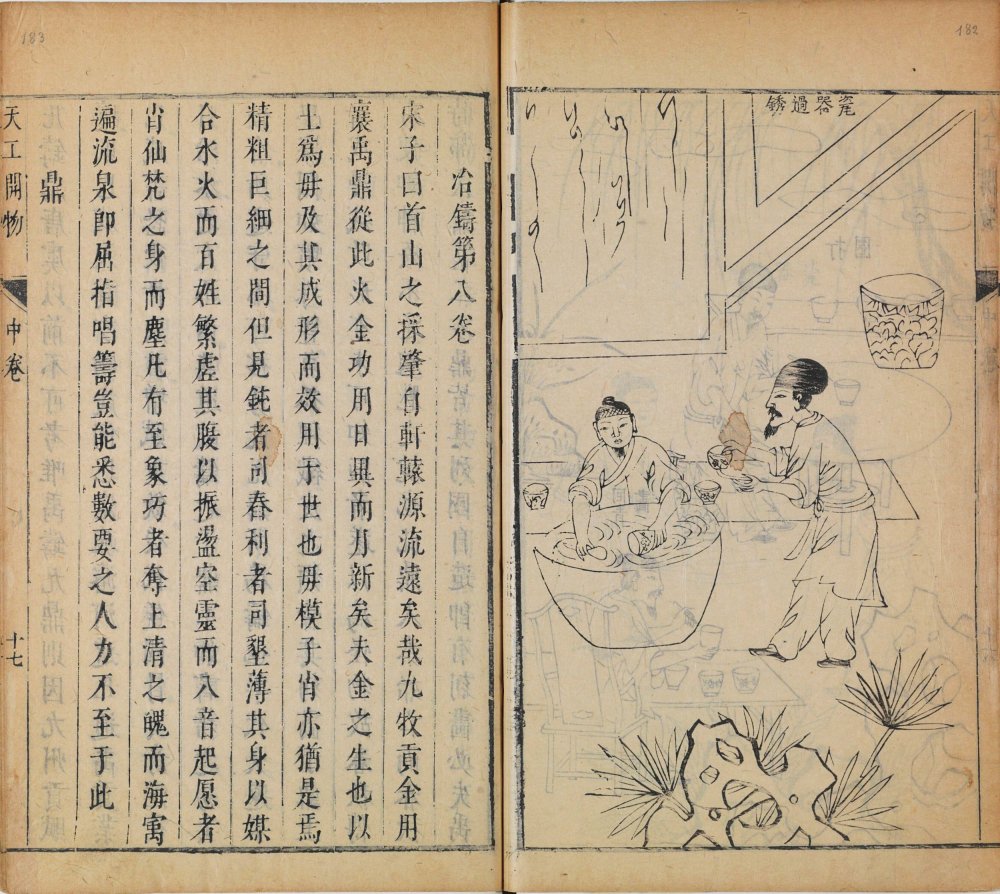 182
瓷器過銹
183
冶鑄第八卷
宋子曰首山之採肇自軒轅源流遠矣哉九牧貢金用
襄禹鼎從此火金功用日異而月新矣夫金之生也以
土爲毋及其成形而效用于世也毋模子肖亦猶是焉
精粗巨細之間但見鈍者司舂利者司墾薄其身以媒
合水火而百姓繁虛其腹以振盪空靈而八音起愿者
肖仙梵之身而塵凡有至象巧者奪上清之魄而海寓
遍流泉卽屈指唱籌豈能悉數要之人力不至于此
鼎
天工開物 中卷 十七